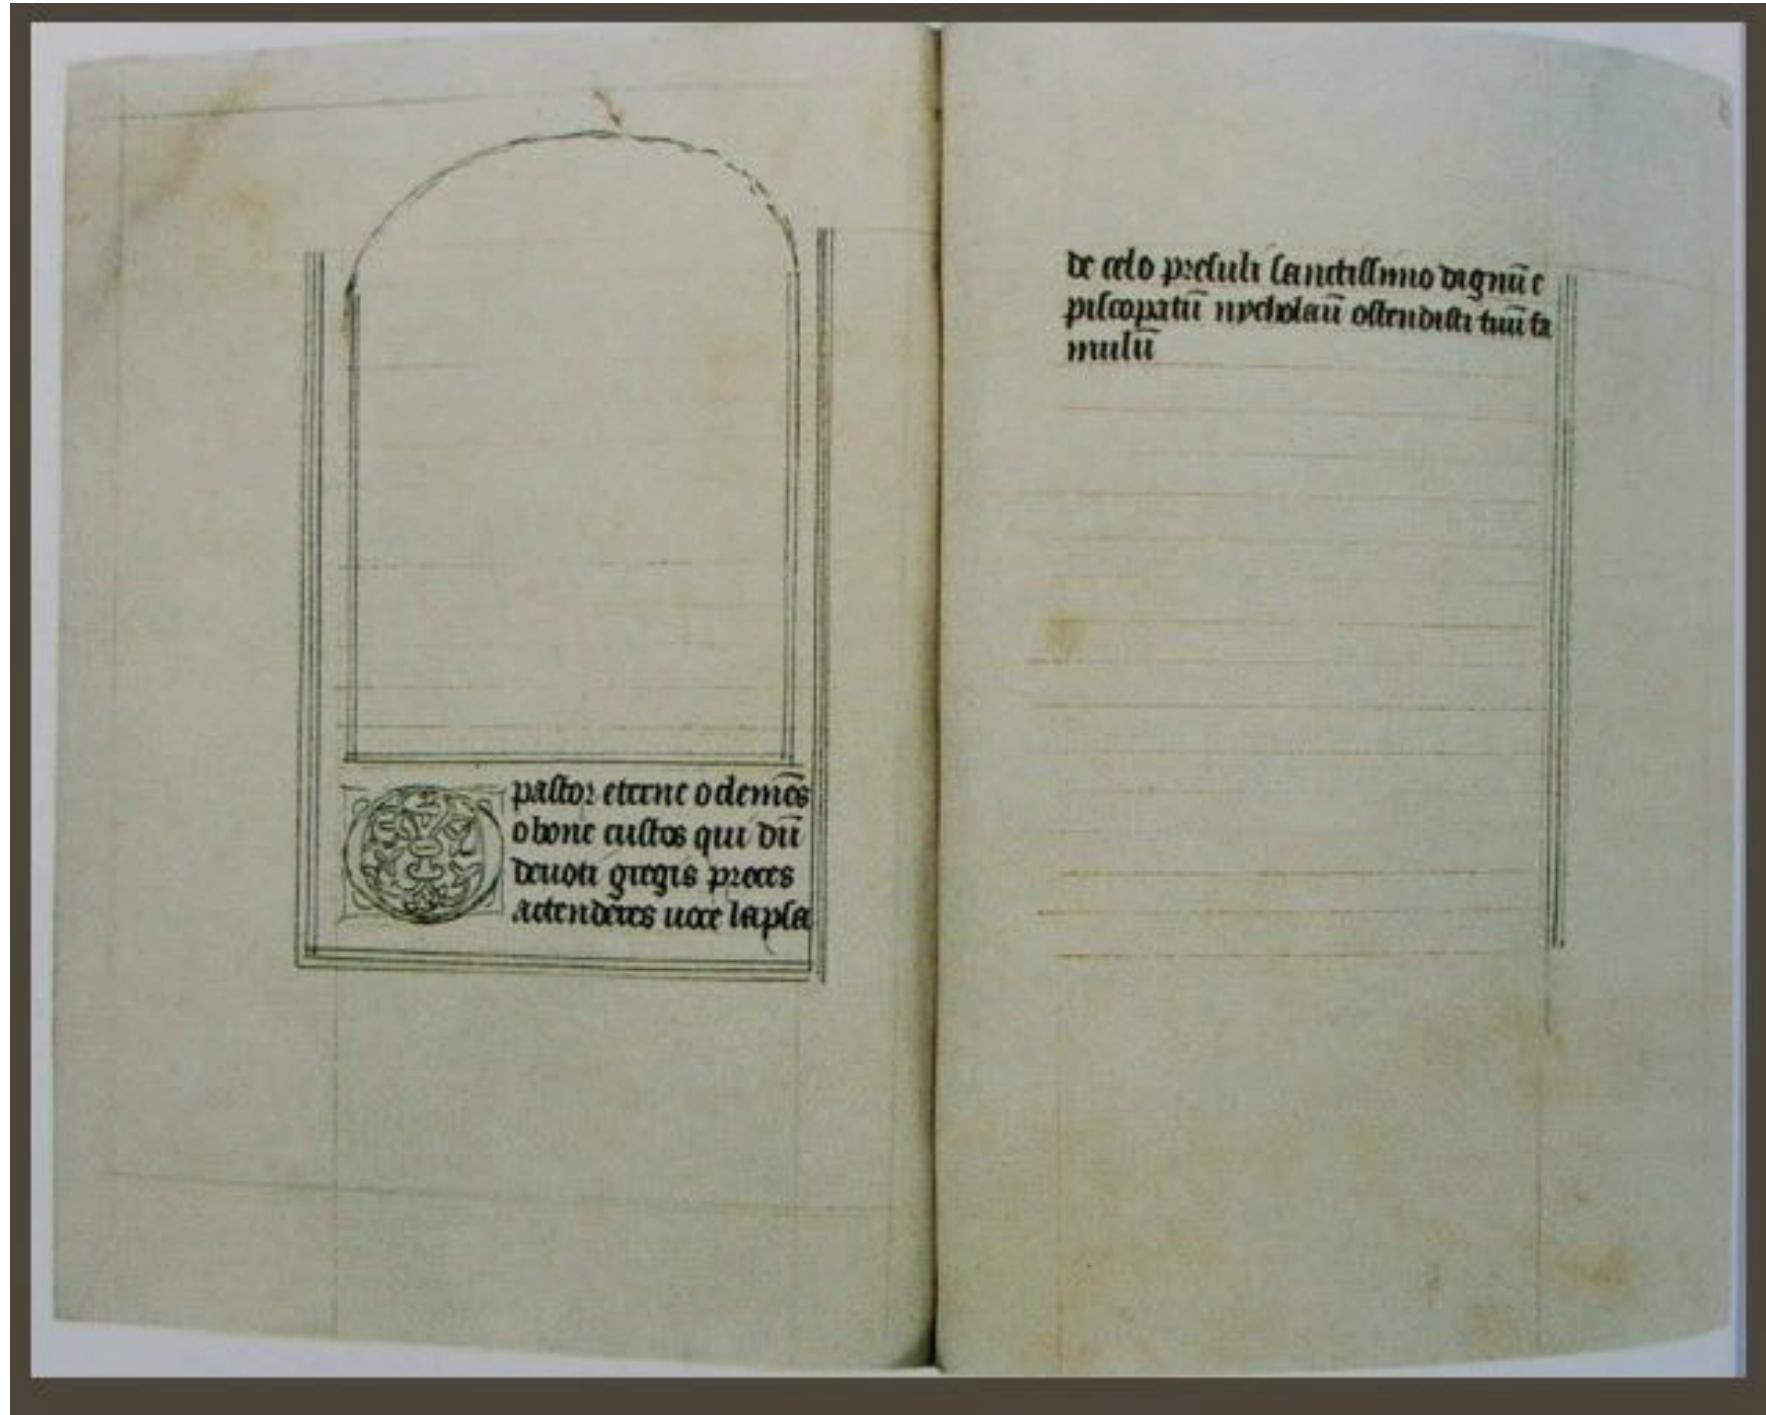 O pastor eterne o clemēs
o bone custos qui dū
deuoti gregis preces
actenderes uoce lapsa
de celo presuli sanctissimo dignū e
piscopatū nycholaū ostendisti tuū fa
mulū